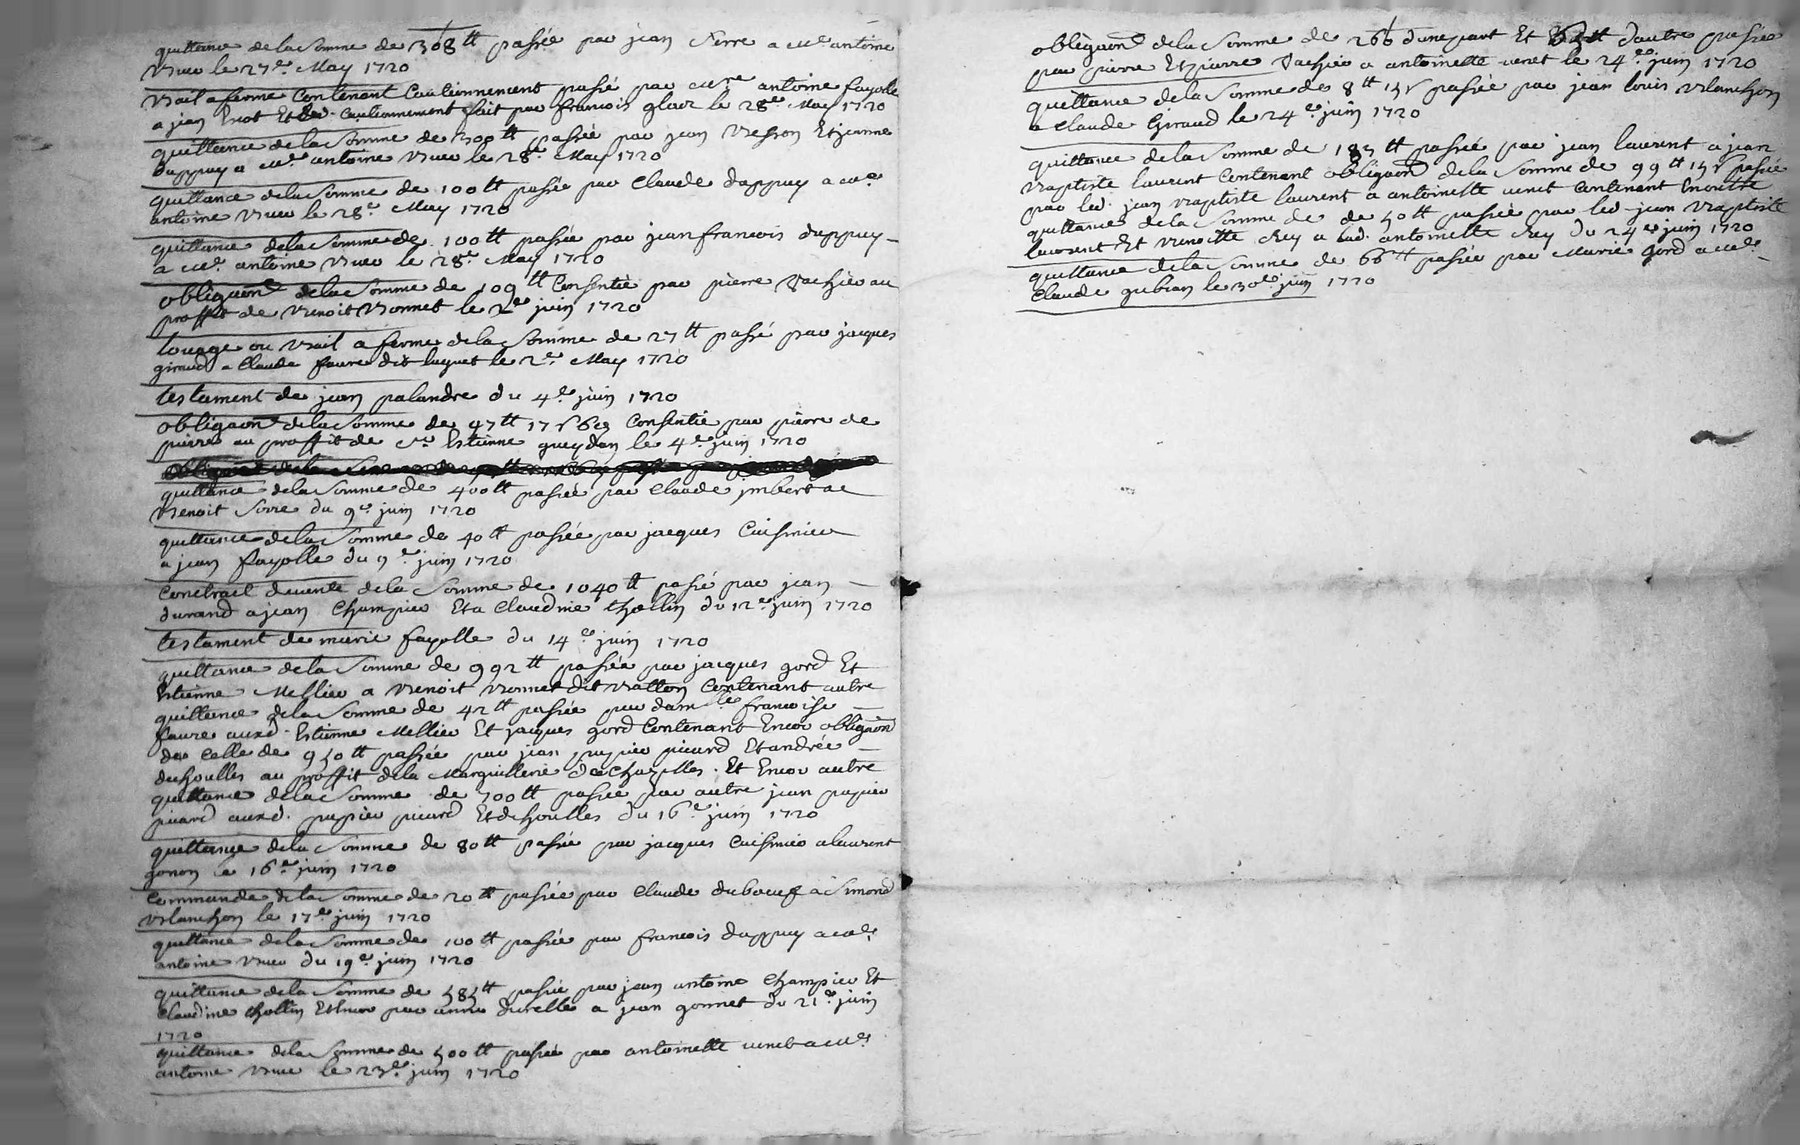 quittance de la somme de 308tt passée par jean serre a me antoine
Vieu le 27e May 1720
Bail a ferme Contenant Cautionnement passé par me antoine fayolle
a jean Cautionnement fait par francois le 28e May 1720
quittance de la somme de 300tt passée par jean Et jeanne
dappuy a me antoine Vieu le 28e May 1720
quittance de la somme de 100tt passée par Claude dappuy a me
antoine Vieu le 28e May 1720
quittance de la somme de 100tt passée par jean francois dappuy
a me antoine Vieu le 28e May 1720
obligaon de la somme de 109tt Consentie par pierre Vachier au
proffit de Benoit Bonnet le 2e juin 1720
louage ou Bail a ferme de la somme de 27tt passé par jacques
giraud a Claude faure dit huguet le 2e May 1720
testament de jean palandre du 4e juin 1720
obligaon de la somme de 47tt 17s 6d Consentie par pierre de
au proffit de Estienne gueydan le 4e juin 1720
quittance de la somme de 400tt passée par Claude jmbert a
Benoit du 9e juin 1720
quittance de la somme de 40tt passée par jacques Cuisinier
a jean fayolle du 9e juin 1720
Contrait de vente de la somme de 1040tt passé par jean
durand a jean Champier Et a Claudine thollin du 12e juin 1720
testament de marie fayolle du 14e juin 1720
quittance de la somme de 992tt passée par jacques gord Et
Estienne Mellier a Benoit Bonnet dit Batton Contenant autre
quittance de la somme de 42tt passée par damlle francoise
faure auxd. Estienne Mellier Et jacques gord Contenant Encor obligaon
de Celle de 950tt passée par jean pupier picard Et andrée
deshoulles au proffit de la Marguillerie de Chazelles. Et Encor autre
quittance de la somme de 700tt passée par autre jean pupier
picard auxd. pupier picard Et deshoulles du 16e juin 1720
quittance de la somme de 80tt passée par jacques Cuisinier a laurent
gonon le 16e juin 1720
Commande de la somme de 20tt passée par Claude duboeuf a Simond
Blanchon le 17e juin 1720
quittance de la somme de 100tt passée par francois dappuy a me
antoine Vieu du 19e juin 1720
quittance de la somme de 585tt passée par jean antoine Champier Et
Claudine thollin Et Encor par anne durelle a jean gonnet du 21e juin
1720
quittance de la somme de 500tt passée par antoinette venet a me
antoine Vieu le 23e juin 1720
obligaon de la somme de 266 d'une part Et d'autre passée
par pierre Et pierre Vachier a antoinette venet le 24e juin 1720
quittance de la somme de 8tt 15s passée par jean louis Blanchon
a Claude Giraud le 24e juin 1720
quittance de la somme de 185tt passée par jean laurent a jean
Baptiste laurent Contenant obligaon de la somme de 99tt 15s passée
par led. jean Baptiste laurent a antoinette venet Contenant En outre
quittance de la somme de de 50tt passée par led jean Baptiste
laurent Et Benoitte Rey a lad. antoinette Rey du 24e juin 1720
quittance de la somme de 66tt passée par Marie gord a me
Claude gubian le 30e juin 1720